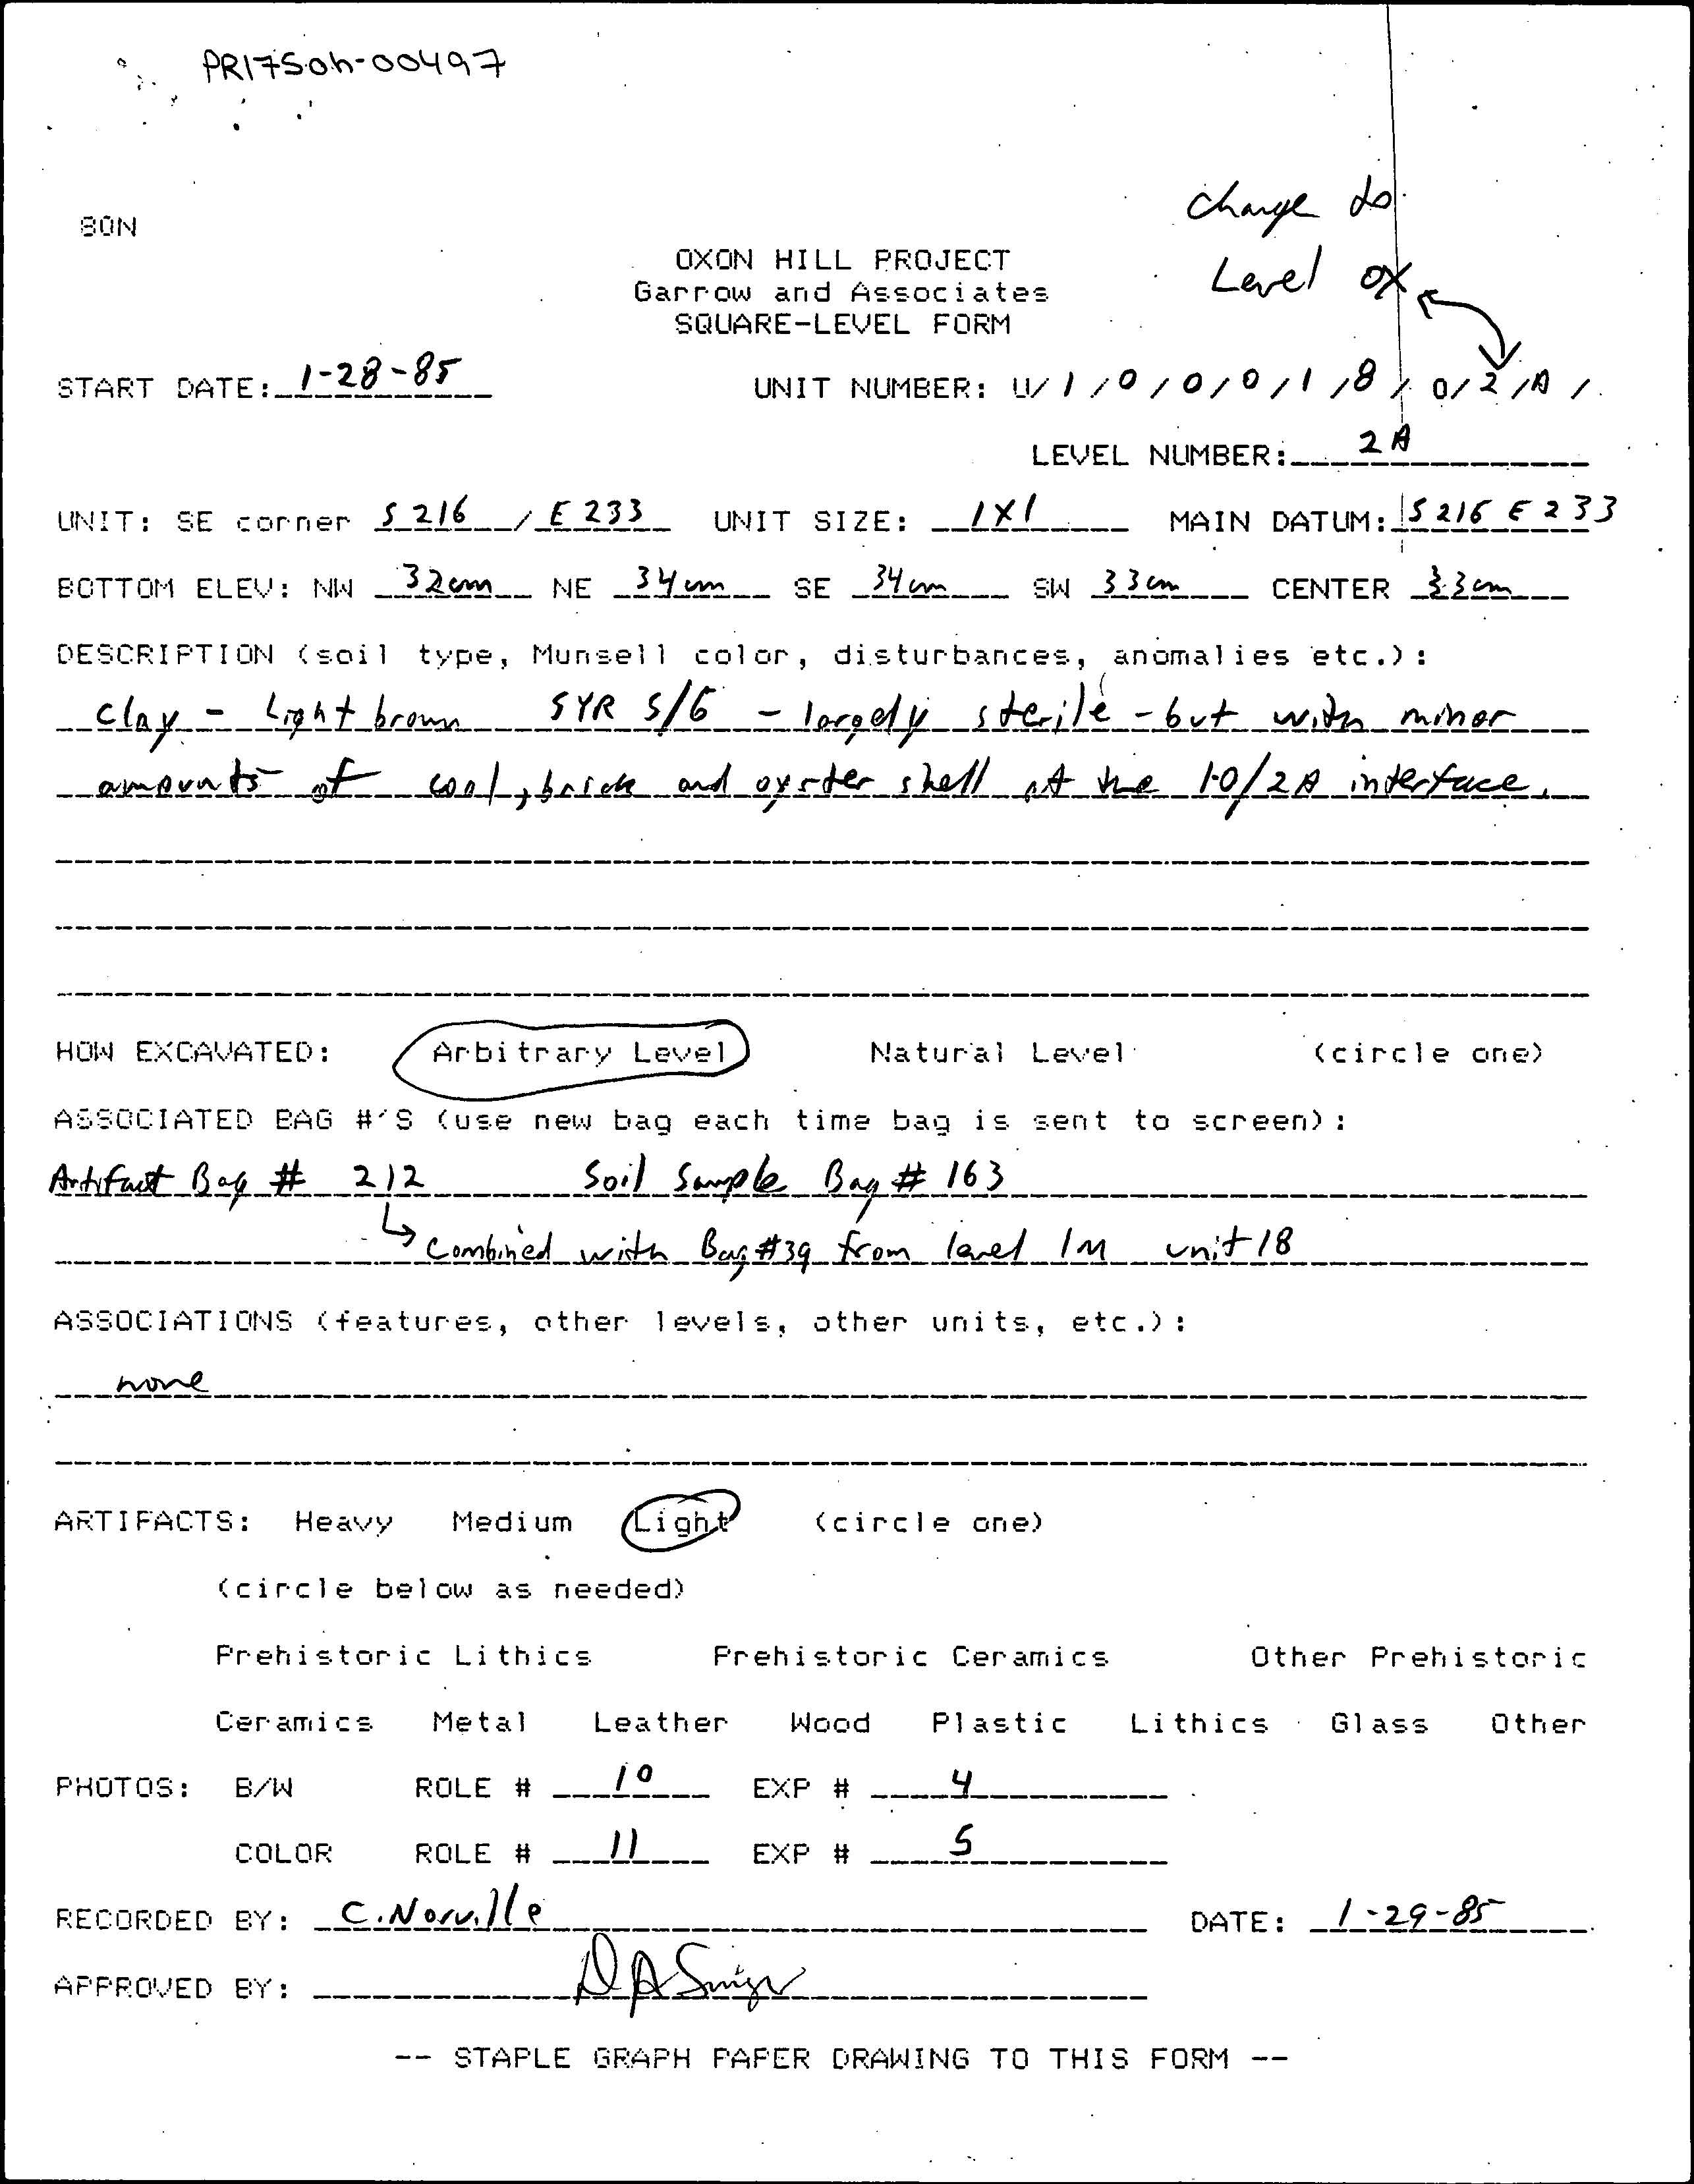 PR175oh-00497
change to
SON
OXON HILL PROJECT
Level OX
Garrow and Associates
SQUARE-LEVEL FORM
START DATE: 1-28-85 UNIT NUMBER: U/ 1 / 0 / 0 / 0 / 1 / 8 / 0/ 2 /A /
LEVEL NUMBER: 2A
UNIT: SE corner S 216 / E 233 UNIT SIZE: 1X1 MAIN DATUM: S 216 E 233
BOTTOM ELEV: NW 32cm NE 34cm SE 34cm SW 33cm CENTER 33cm
DESCRIPTION (soil type, Munsell color, disturbances, anomalies etc.):
clay - Light brown 5YR 5/6 - largely sterile - but with minor
amounts of coal, brick and oyster shell at the 1.0/2A interface.
HOW EXCAVATED: Arbitrary Level Natural Level (circle one)
ASSOCIATED BAG #'S (use new bag each time bag is sent to screen):
Artifact Bag # 212 Soil Sample Bag # 163
↳ Combined with Bag #39 from level 1M unit 18
ASSOCIATIONS (features, other levels, other units, etc.):
none
ARTIFACTS: Heavy Medium Light (circle one)
(circle below as needed)
Prehistoric Lithics Prehistoric Ceramics Other Prehistoric
Ceramics Metal Leather Wood Plastic Lithics Glass Other
PHOTOS: B/W ROLE # 10 EXP # 4
COLOR ROLE # 11 EXP # 5
RECORDED BY: C. Norville DATE: 1-29-85
APPROVED BY:
-- STAPLE GRAPH PAPER DRAWING TO THIS FORM --